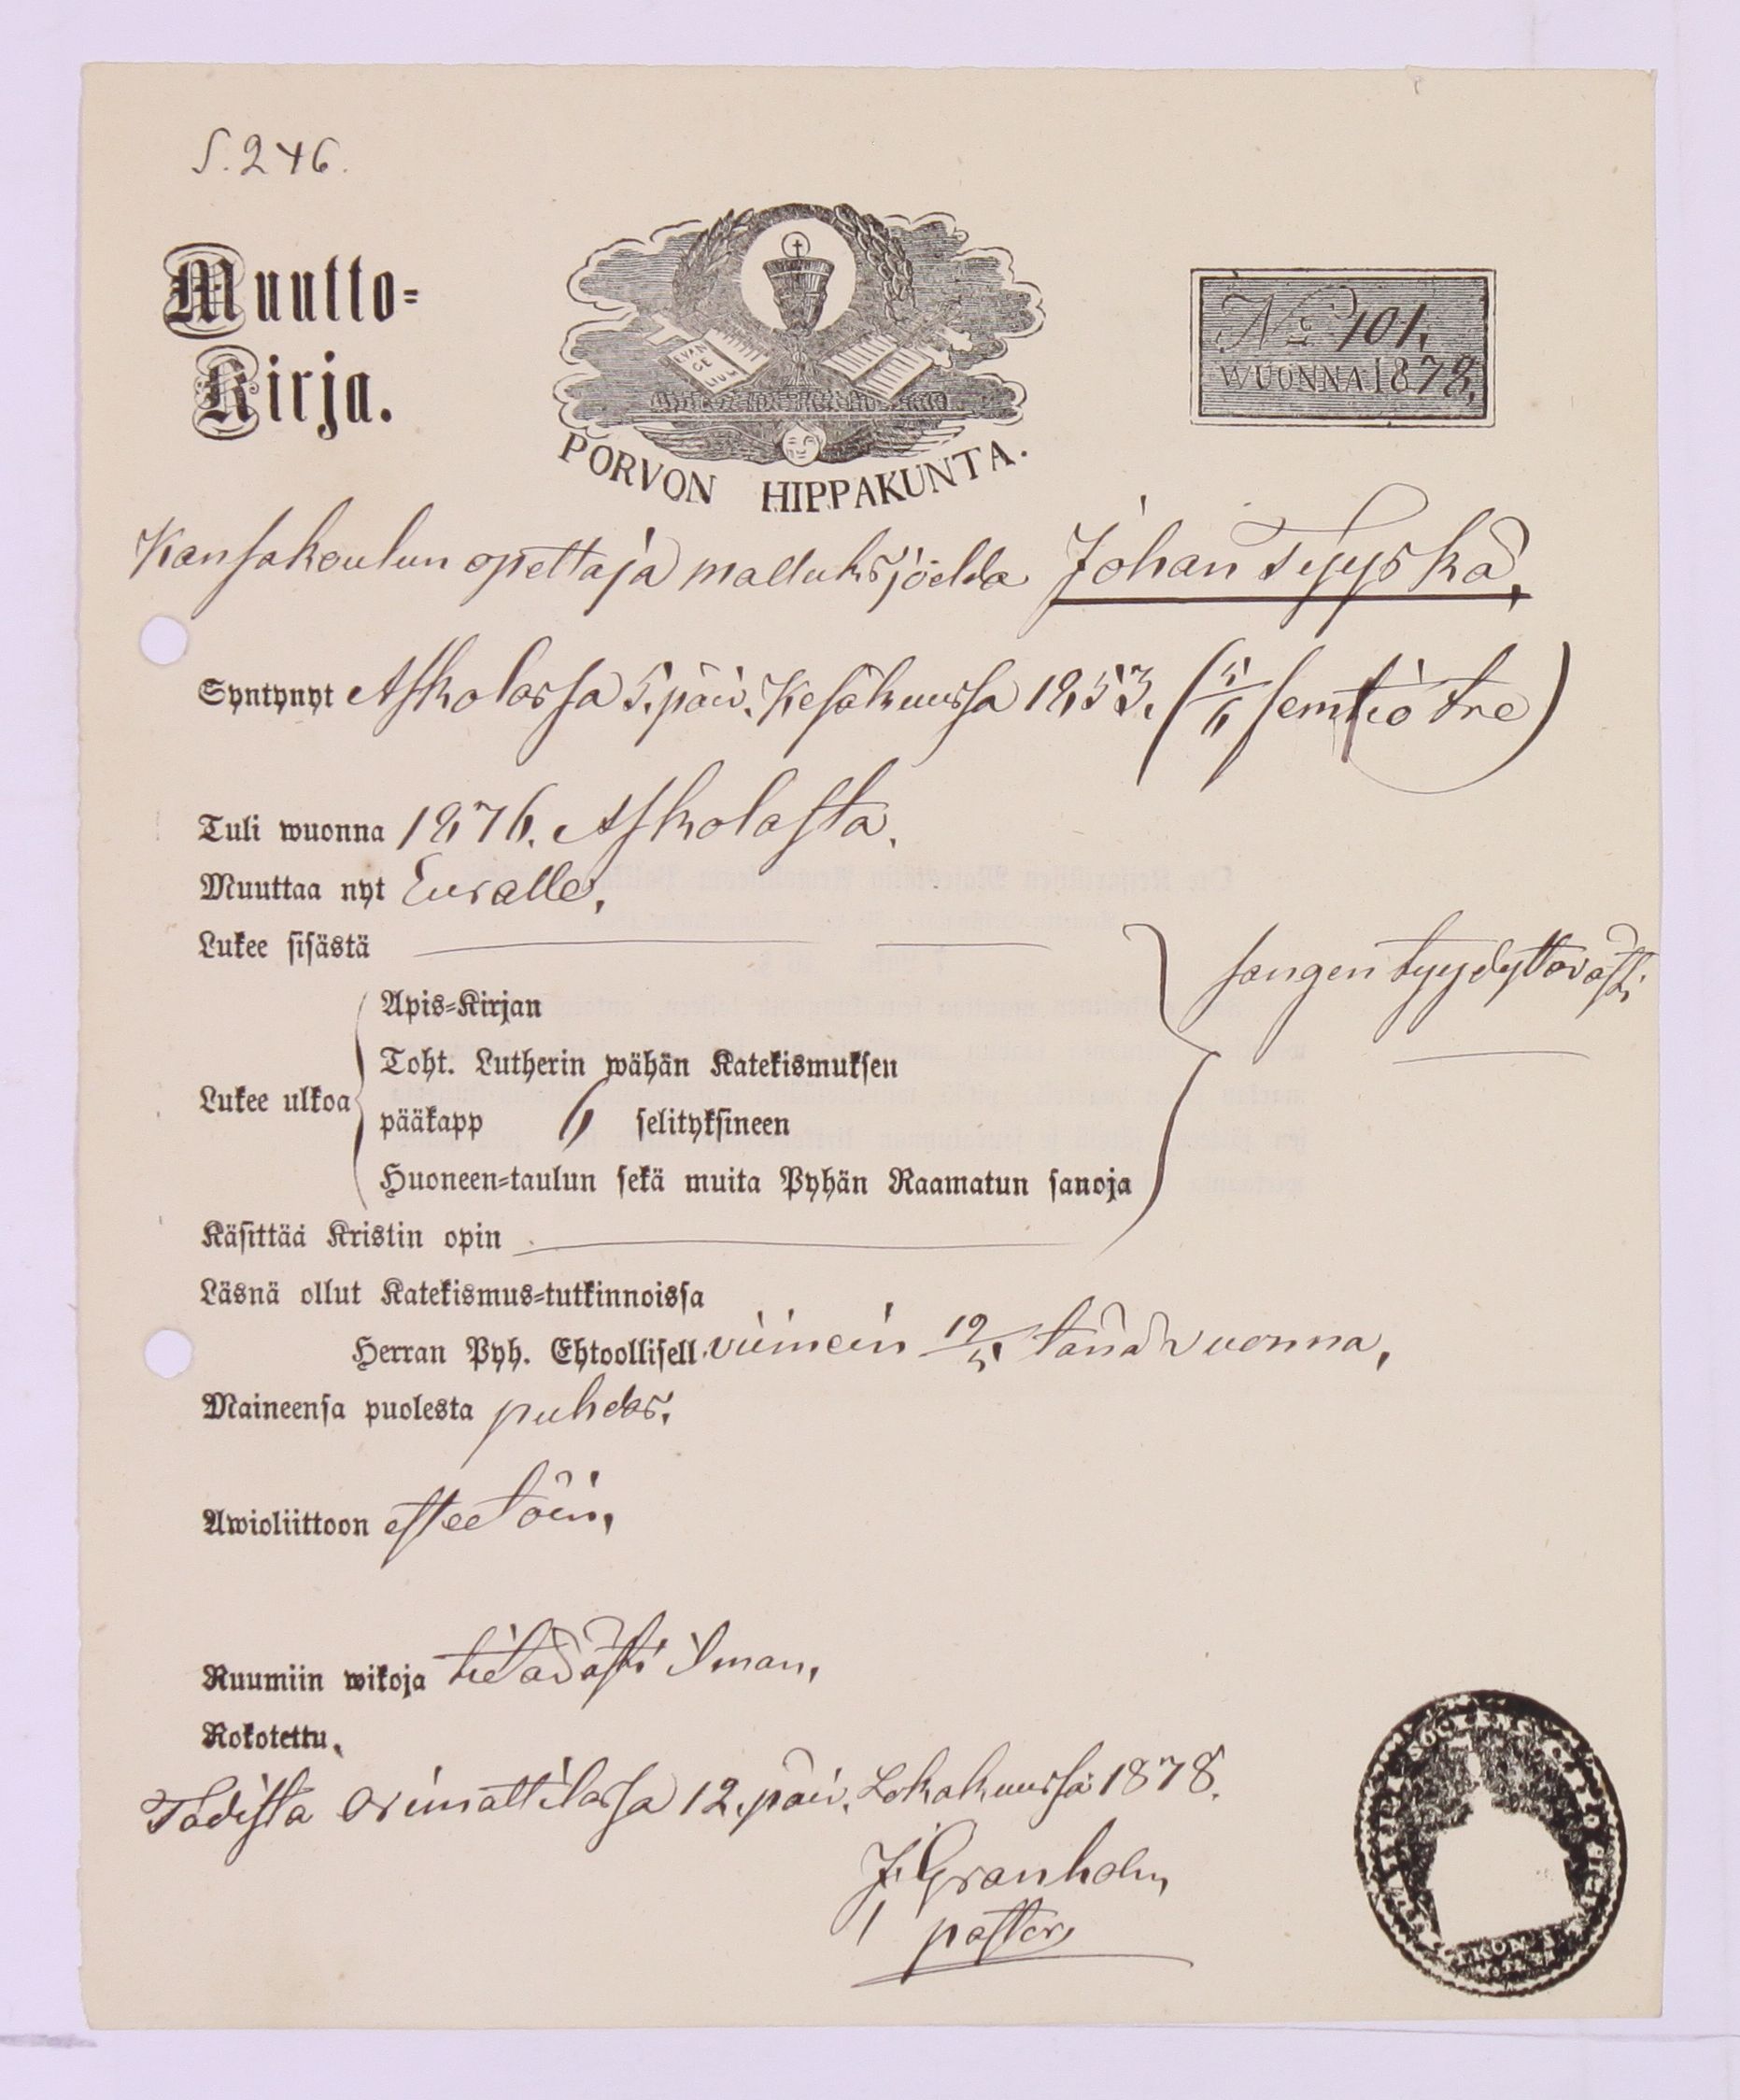 S. 246.
Muutto-
Kirja.
EVAN
GE
LIUM
PORVON HIPPAKUNTA.
No 101.
WUONNA 1878.
Kansakoulun opettaja Mallusjoelda Johan Tyyskä,
Syntynyt Askolassa 5. päiv. Kesäkuussa 1853. (5/6 femtio tre)
Tuli wuonna 1876. Askolasta.
Muuttaa nyt Euralle,
Lukee sisästä
sangen tyydyttäväst.
Apis-Kirjan
Toht. Lutherin wähän Katekismuksen
Lukee ulkoa
pääkapp 6 selityksineen
Huoneen-taulun sekä muita Pyhän Raamatun sanoja
Käsittää Kristin opin
Läsnä ollut Katekismus-tutkinnoissa
Herran Pyh. Ehtoollisell viimein 19/5 tänä vuonna,
Maineensa puolesta puhdas.
Awioliittoon esteetöin,
Ruumiin wikoja tietäväst ilman,
Rokotettu,
Todista Orimattilassa 12. päiv. Lokakuussa 1878.
J. Granholm
pastor